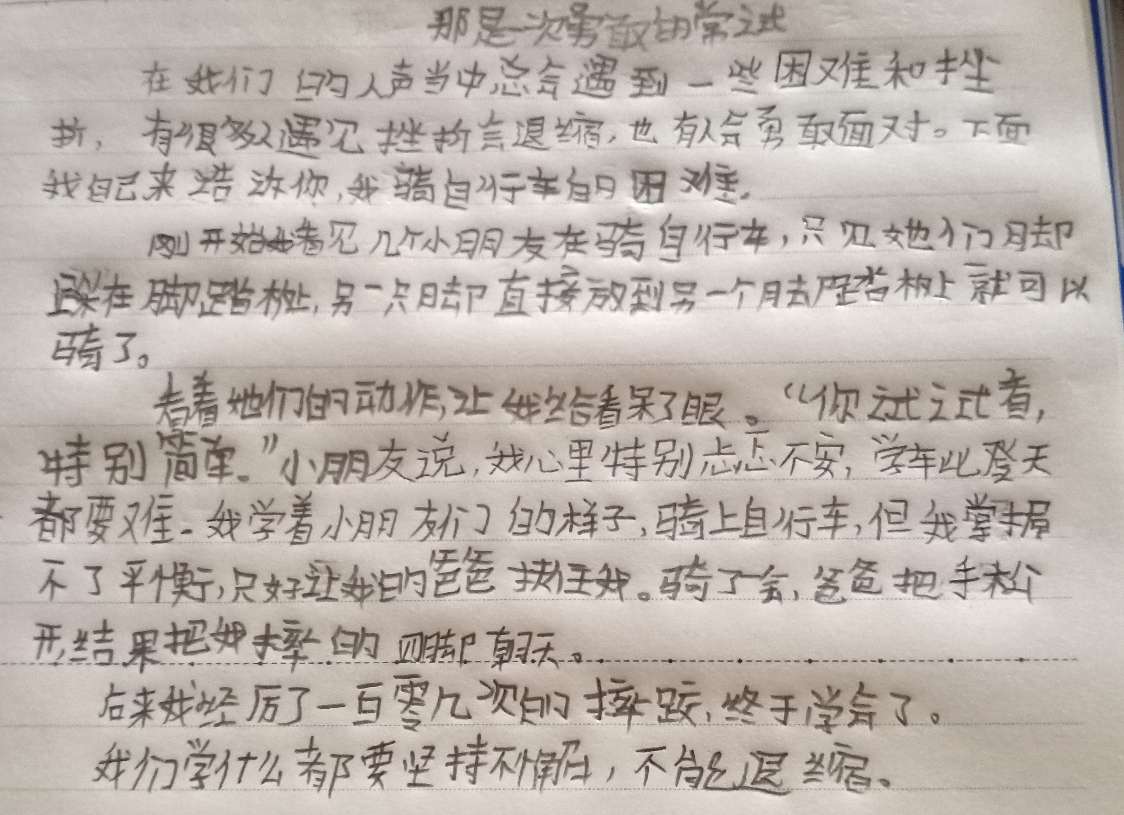 那是一次勇敢的常试
在我们的人声当中总会遇到一些困难和挫
折，有很多人遇见挫折会退缩，也有人会勇敢面对。下面
我自己来告诉你，我骑自行车的困难。
刚开始我看见几个小朋友在骑自行车，只见她们脚
踩在脚踏板上，另一只脚直接放到另一个脚踏板上就可以
骑了。
看着她们的动作，让我给看呆了眼。“你试试看，
特别简单。”小朋友说，我心里特别忐忑不安，学车比登天
都要难。我学着小朋友们的样子，骑上自行车，但我掌握
不了平衡，只好让我的爸爸扶住我。骑了会，爸爸把手松
开，结果把我摔的四脚朝天。
后来我经厉了一百零几次的摔跤，终于学会了。
我们学什么都要坚持不懈，不能退缩。